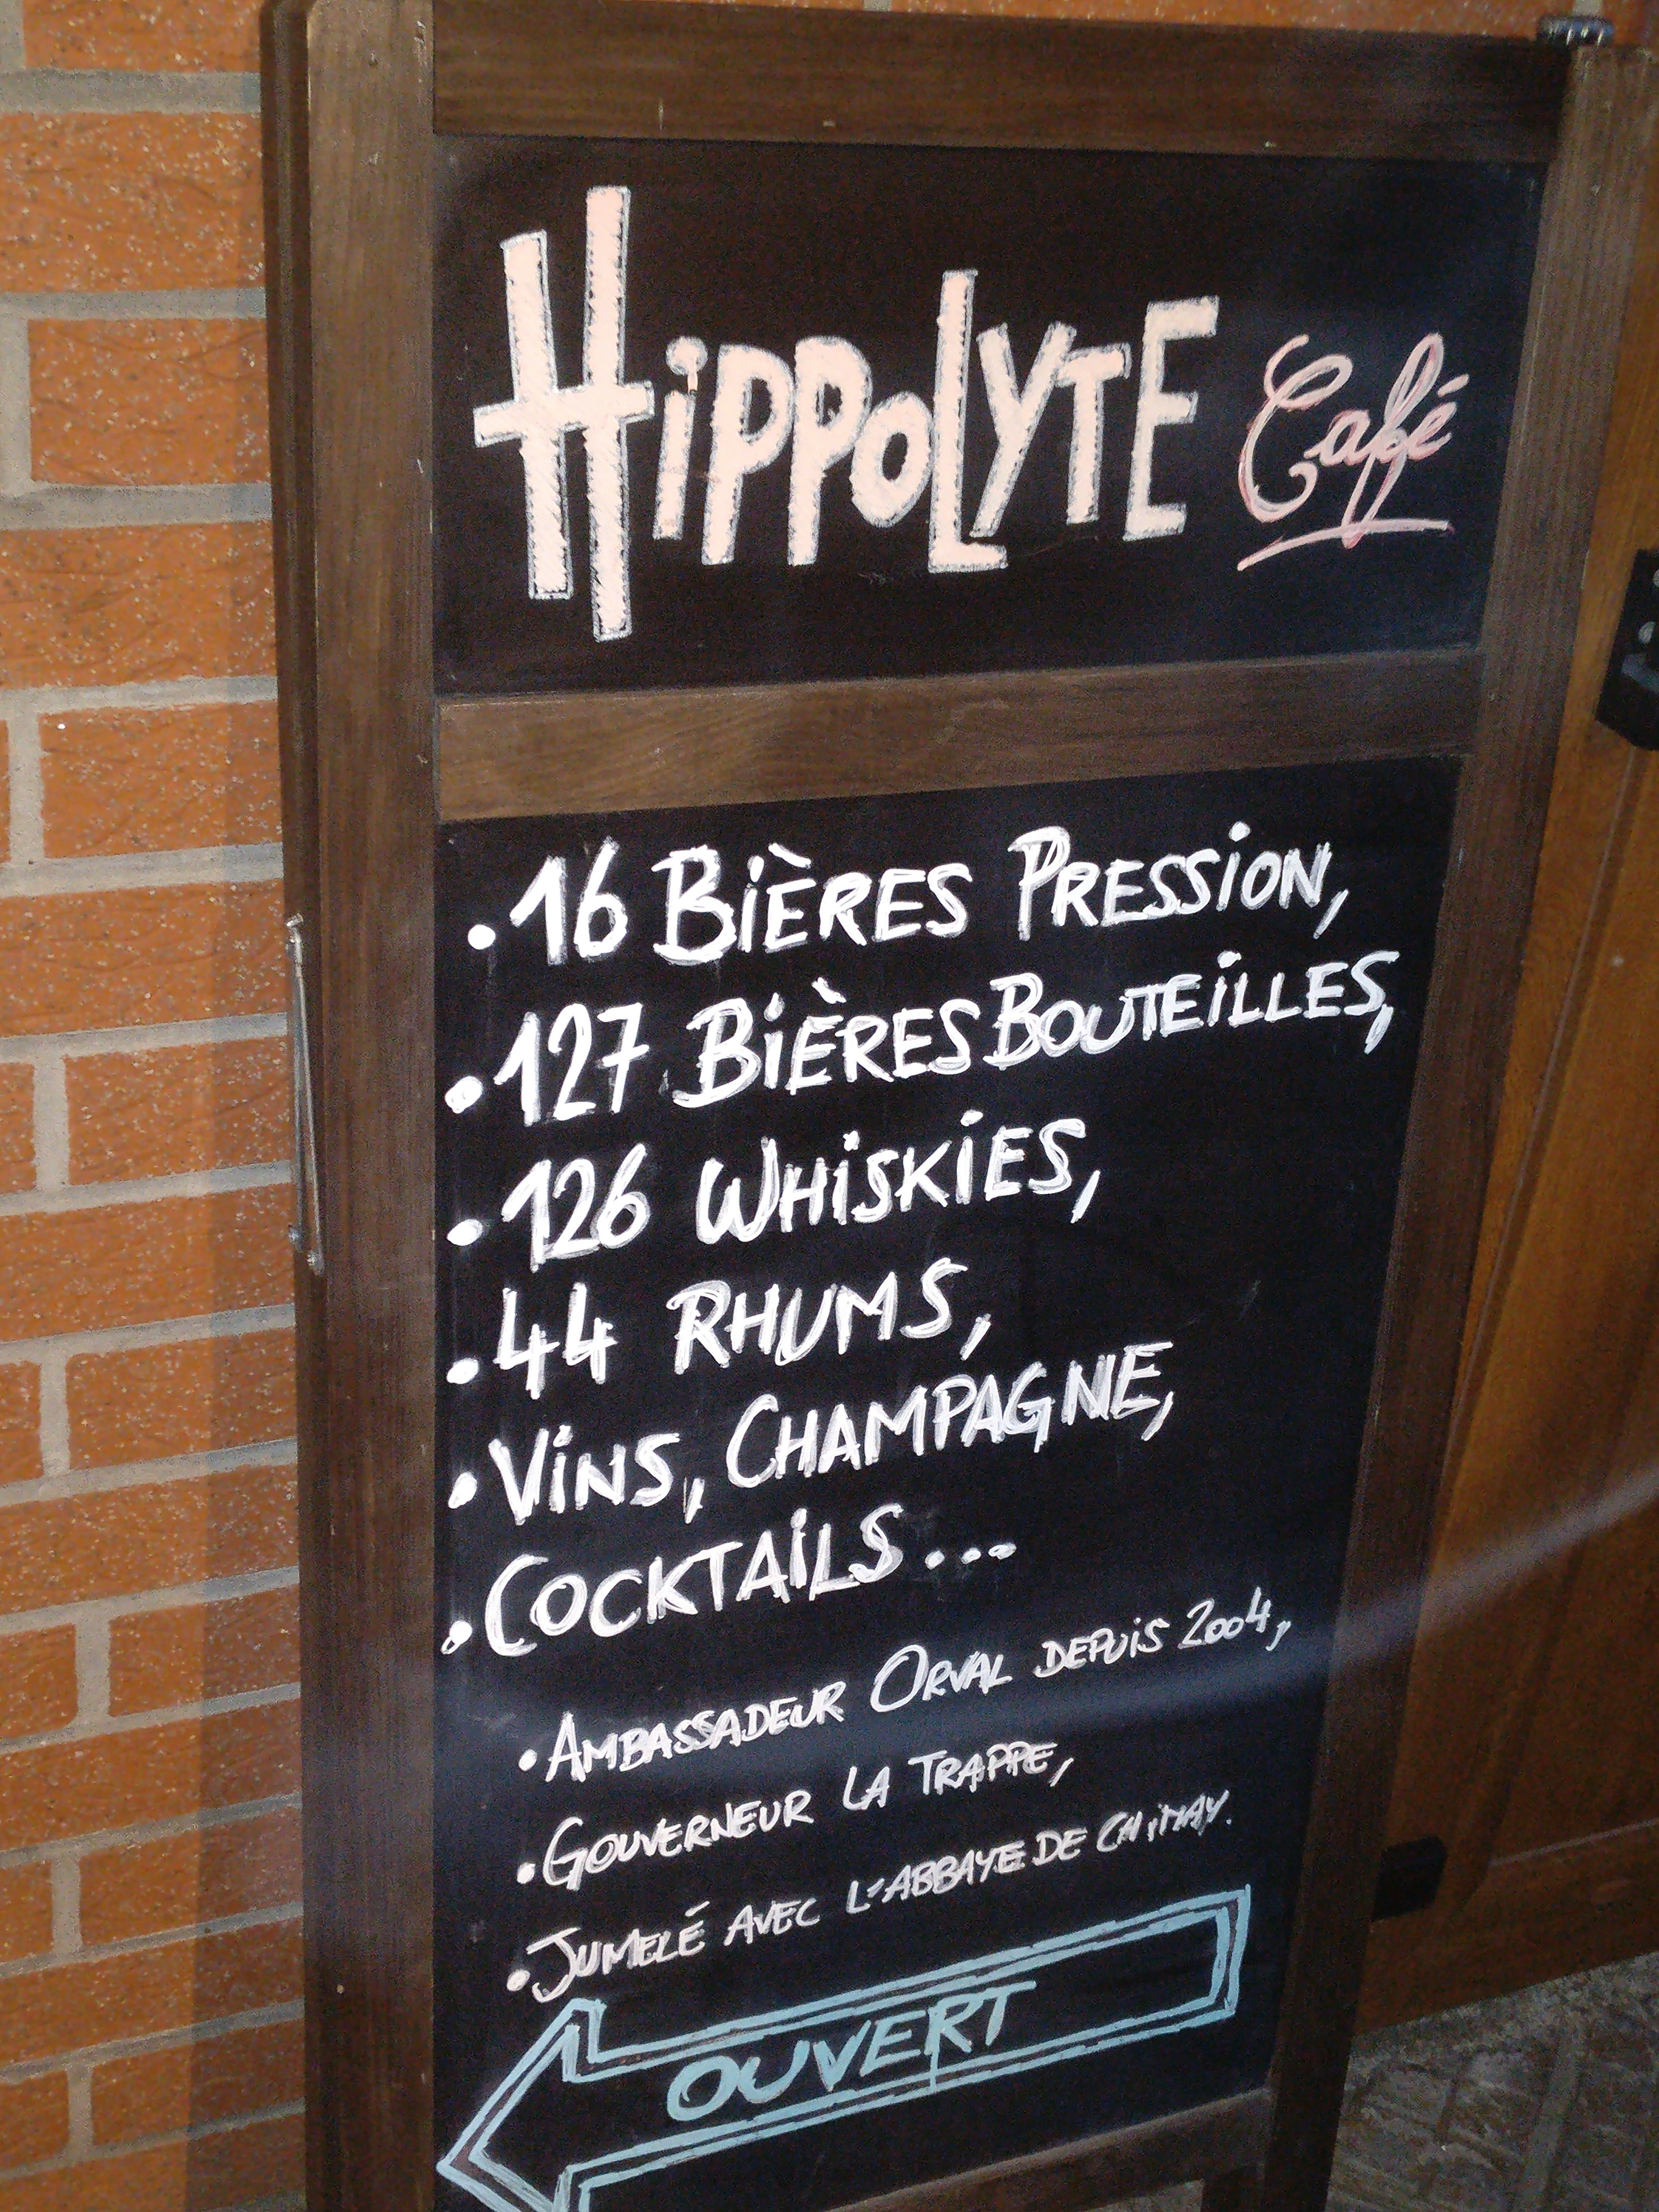 HiPPOLYTE Café
• 16 BiÈRES PRESSiON,
• 127 BiÈRES BOUTEiLLES,
• 126 WHiSKiES,
• 44 RHUMS,
• ViNS, CHAMPAGNE,
• COCKTAiLS...
• AMBASSADEUR ORVAL DEPUiS 2004,
• GOUVERNEUR LA TRAPPE,
• JUMELÉ AVEC L'ABBAYE DE CHiMAY.
OUVERT